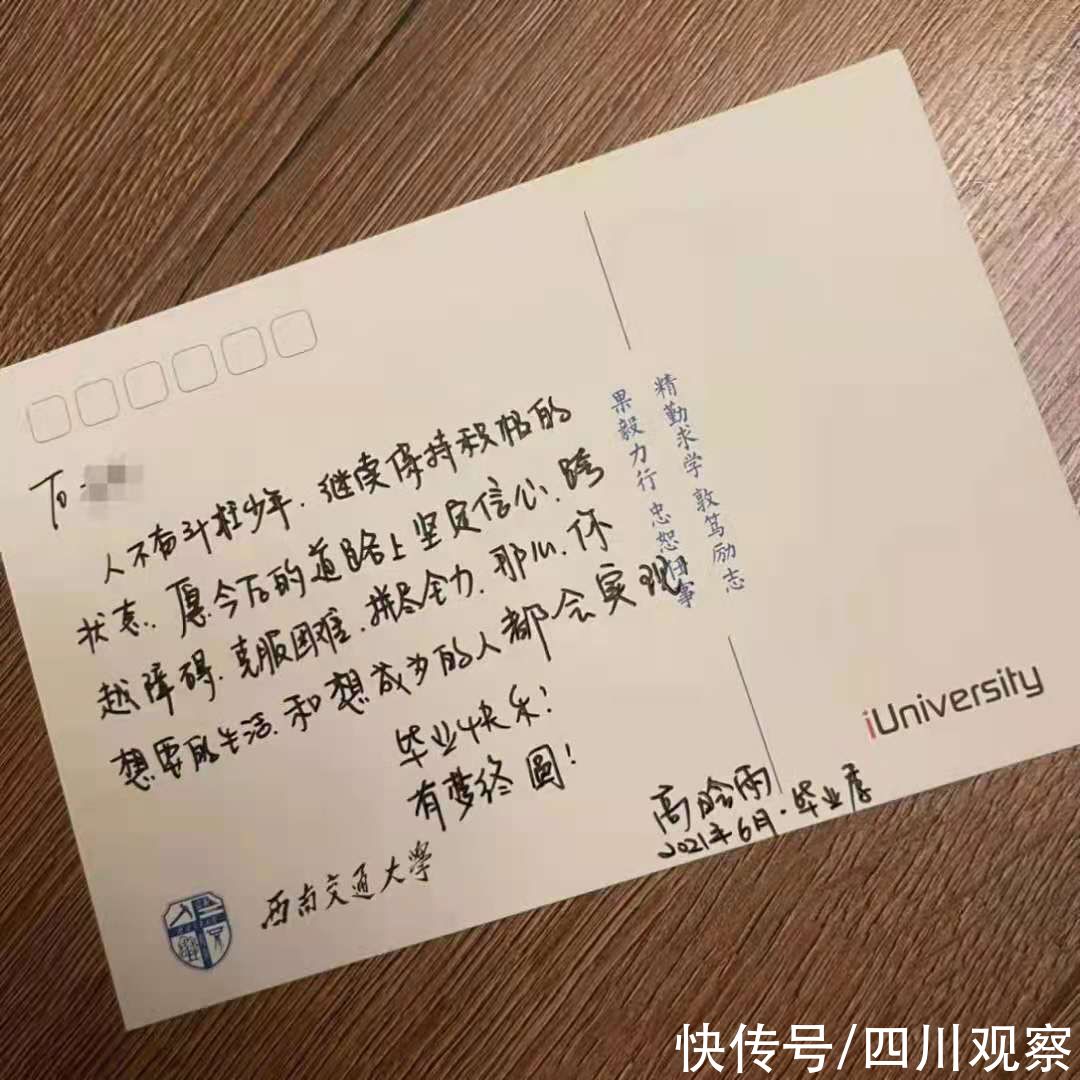 To
人不奋斗枉少年. 继续保持积极的
状态. 愿今后的道路上坚定信心. 跨
越障碍. 克服困难. 拼尽全力. 那么. 你
想要的生活. 和想成为的人都会实现
毕业快乐!
有梦终圆!
高晗雨
2021年6月·毕业季
精勤求学 敦笃励志
果毅力行 忠恕任事
iUniversity
西南交通大学
快传号/四川观察